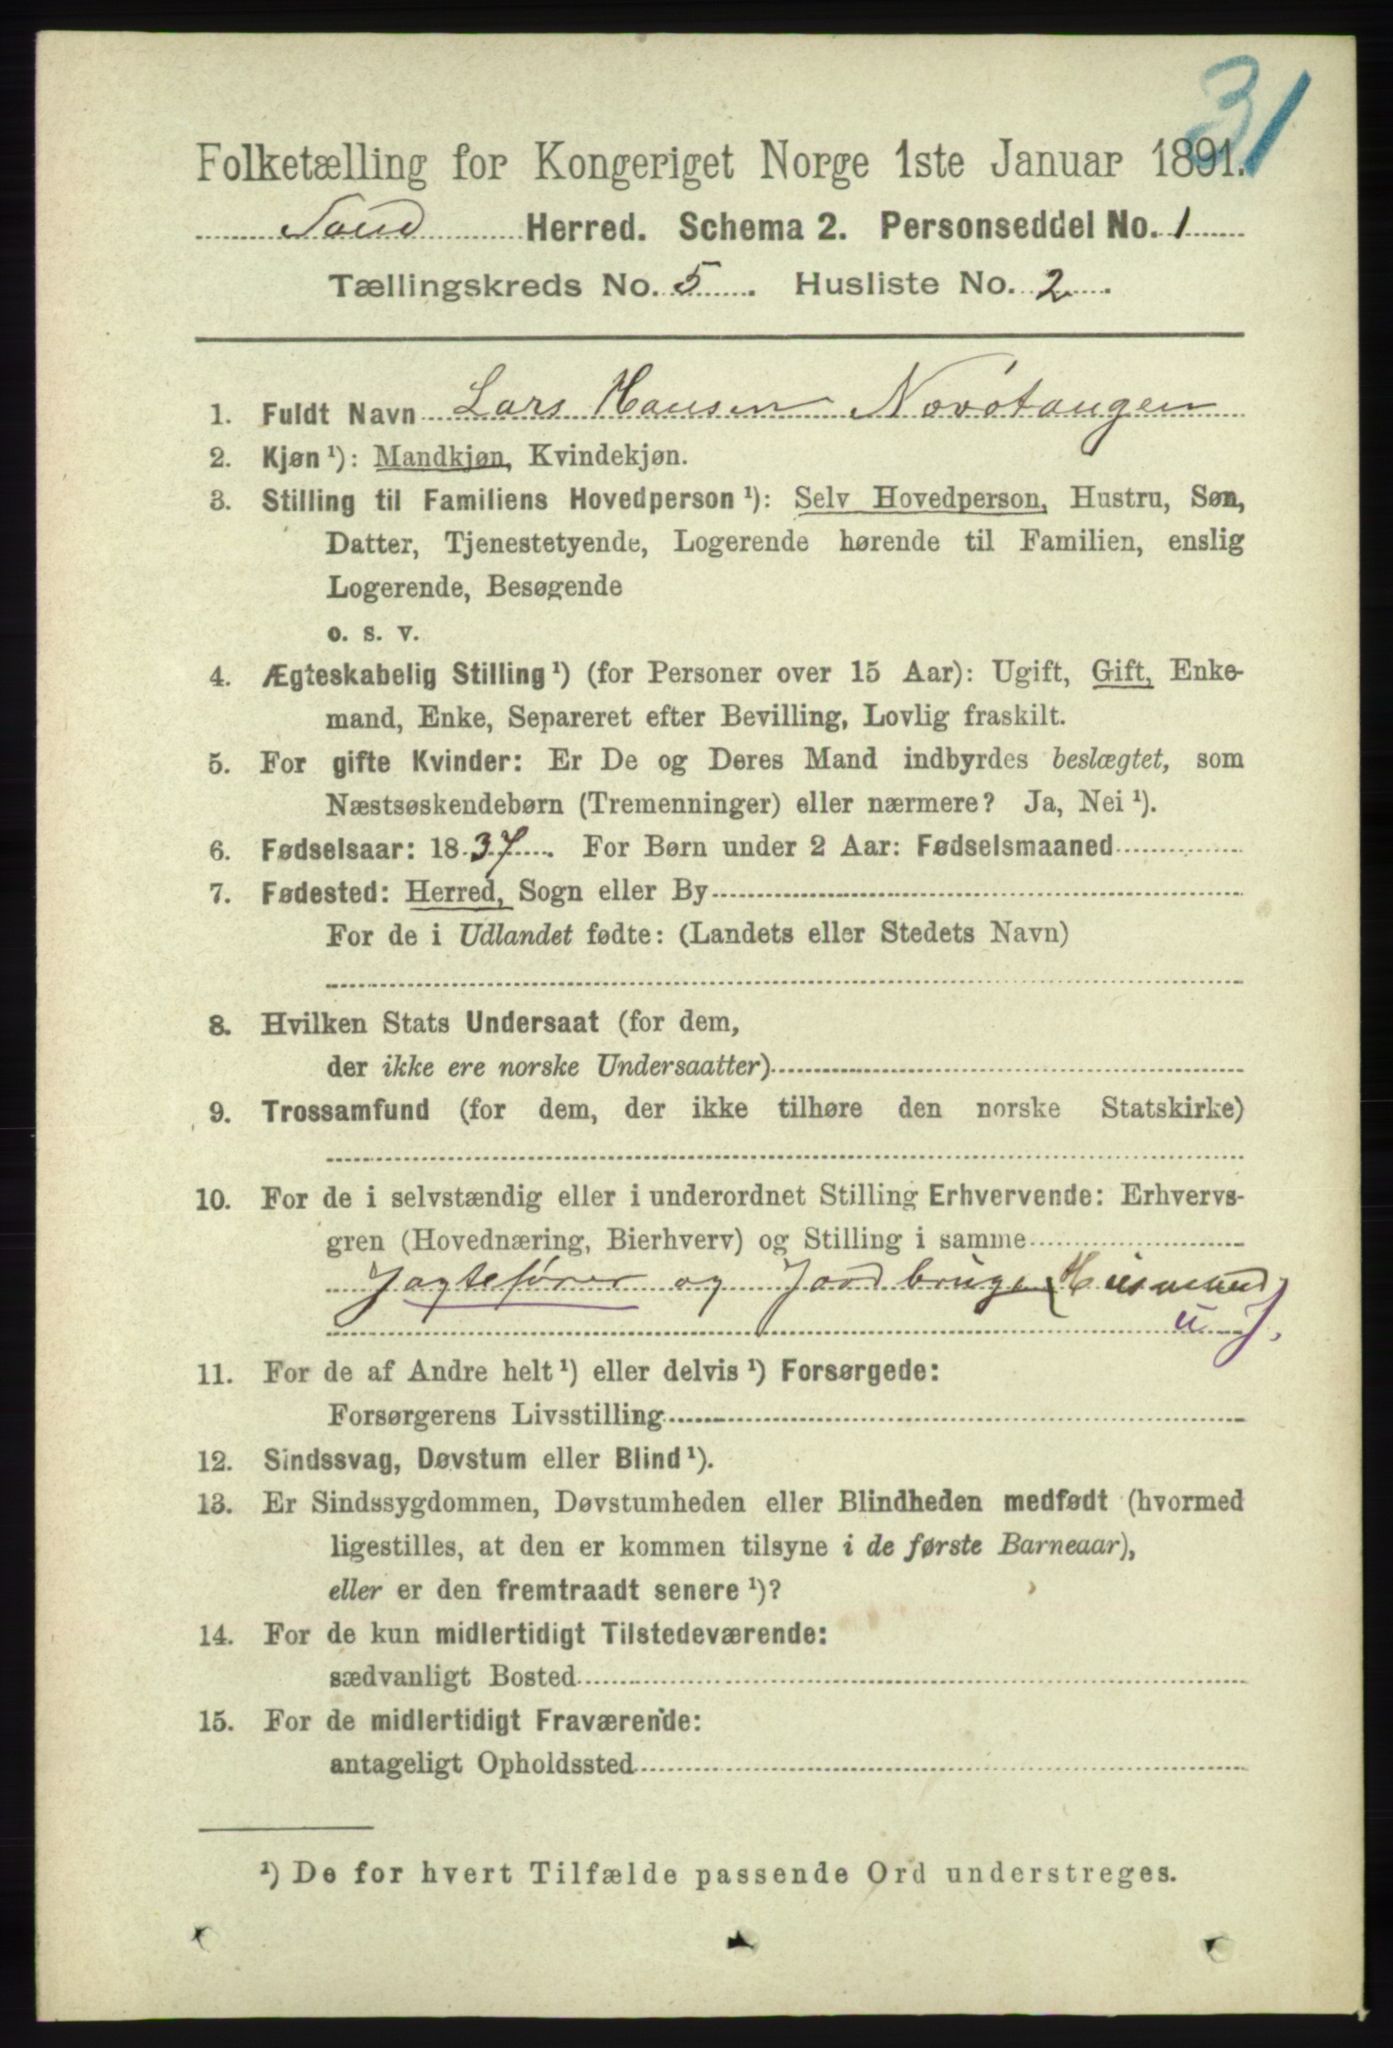 31
Folketælling for Kongeriget Norge 1ste Januar 1891.
Sand Herred. Schema 2. Personseddel No. 1
Tællingskreds No. 5. Husliste No. 2.
1. Fuldt Navn Lars Hansen
2. Kjøn ¹): Mandkjøn, Kvindekjøn.
3. Stilling til Familiens Hovedperson ¹): Selv Hovedperson, Hustru, Søn,
Datter, Tjenestetyende, Logerende hørende til Familien, enslig
Logerende, Besøgende
o. s. v.
4. Ægteskabelig Stilling ¹) (for Personer over 15 Aar): Ugift, Gift, Enke-
mand, Enke, Separeret efter Bevilling, Lovlig fraskilt.
5. For gifte Kvinder: Er De og Deres Mand indbyrdes beslægtet, som
Næstsøskendebørn (Tremenninger) eller nærmere? Ja, Nei ¹).
6. Fødselsaar: 1837. For Børn under 2 Aar: Fødselsmaaned
7. Fødested: Herred, Sogn eller By
For de i Udlandet fødte: (Landets eller Stedets Navn)
8. Hvilken Stats Undersaat (for dem,
der ikke ere norske Undersaatter)
9. Trossamfund (for dem, der ikke tilhøre den norske Statskirke)
10. For de i selvstændig eller i underordnet Stilling Erhvervende: Erhvervs-
gren (Hovednæring, Bierhverv) og Stilling i samme
Jagtefører og Jordbruger (Husmand
u J.
11. For de af Andre helt ¹) eller delvis ¹) Forsørgede:
Forsørgerens Livsstilling
12. Sindssvag, Døvstum eller Blind ¹).
13. Er Sindssygdommen, Døvstumheden eller Blindheden medfødt (hvormed
ligestilles, at den er kommen tilsyne i de første Barneaar),
eller er den fremtraadt senere ¹)?
14. For de kun midlertidigt Tilstedeværende:
sædvanligt Bosted
15. For de midlertidigt Fraværende:
antageligt Opholdssted
¹) De for hvert Tilfælde passende Ord understreges.